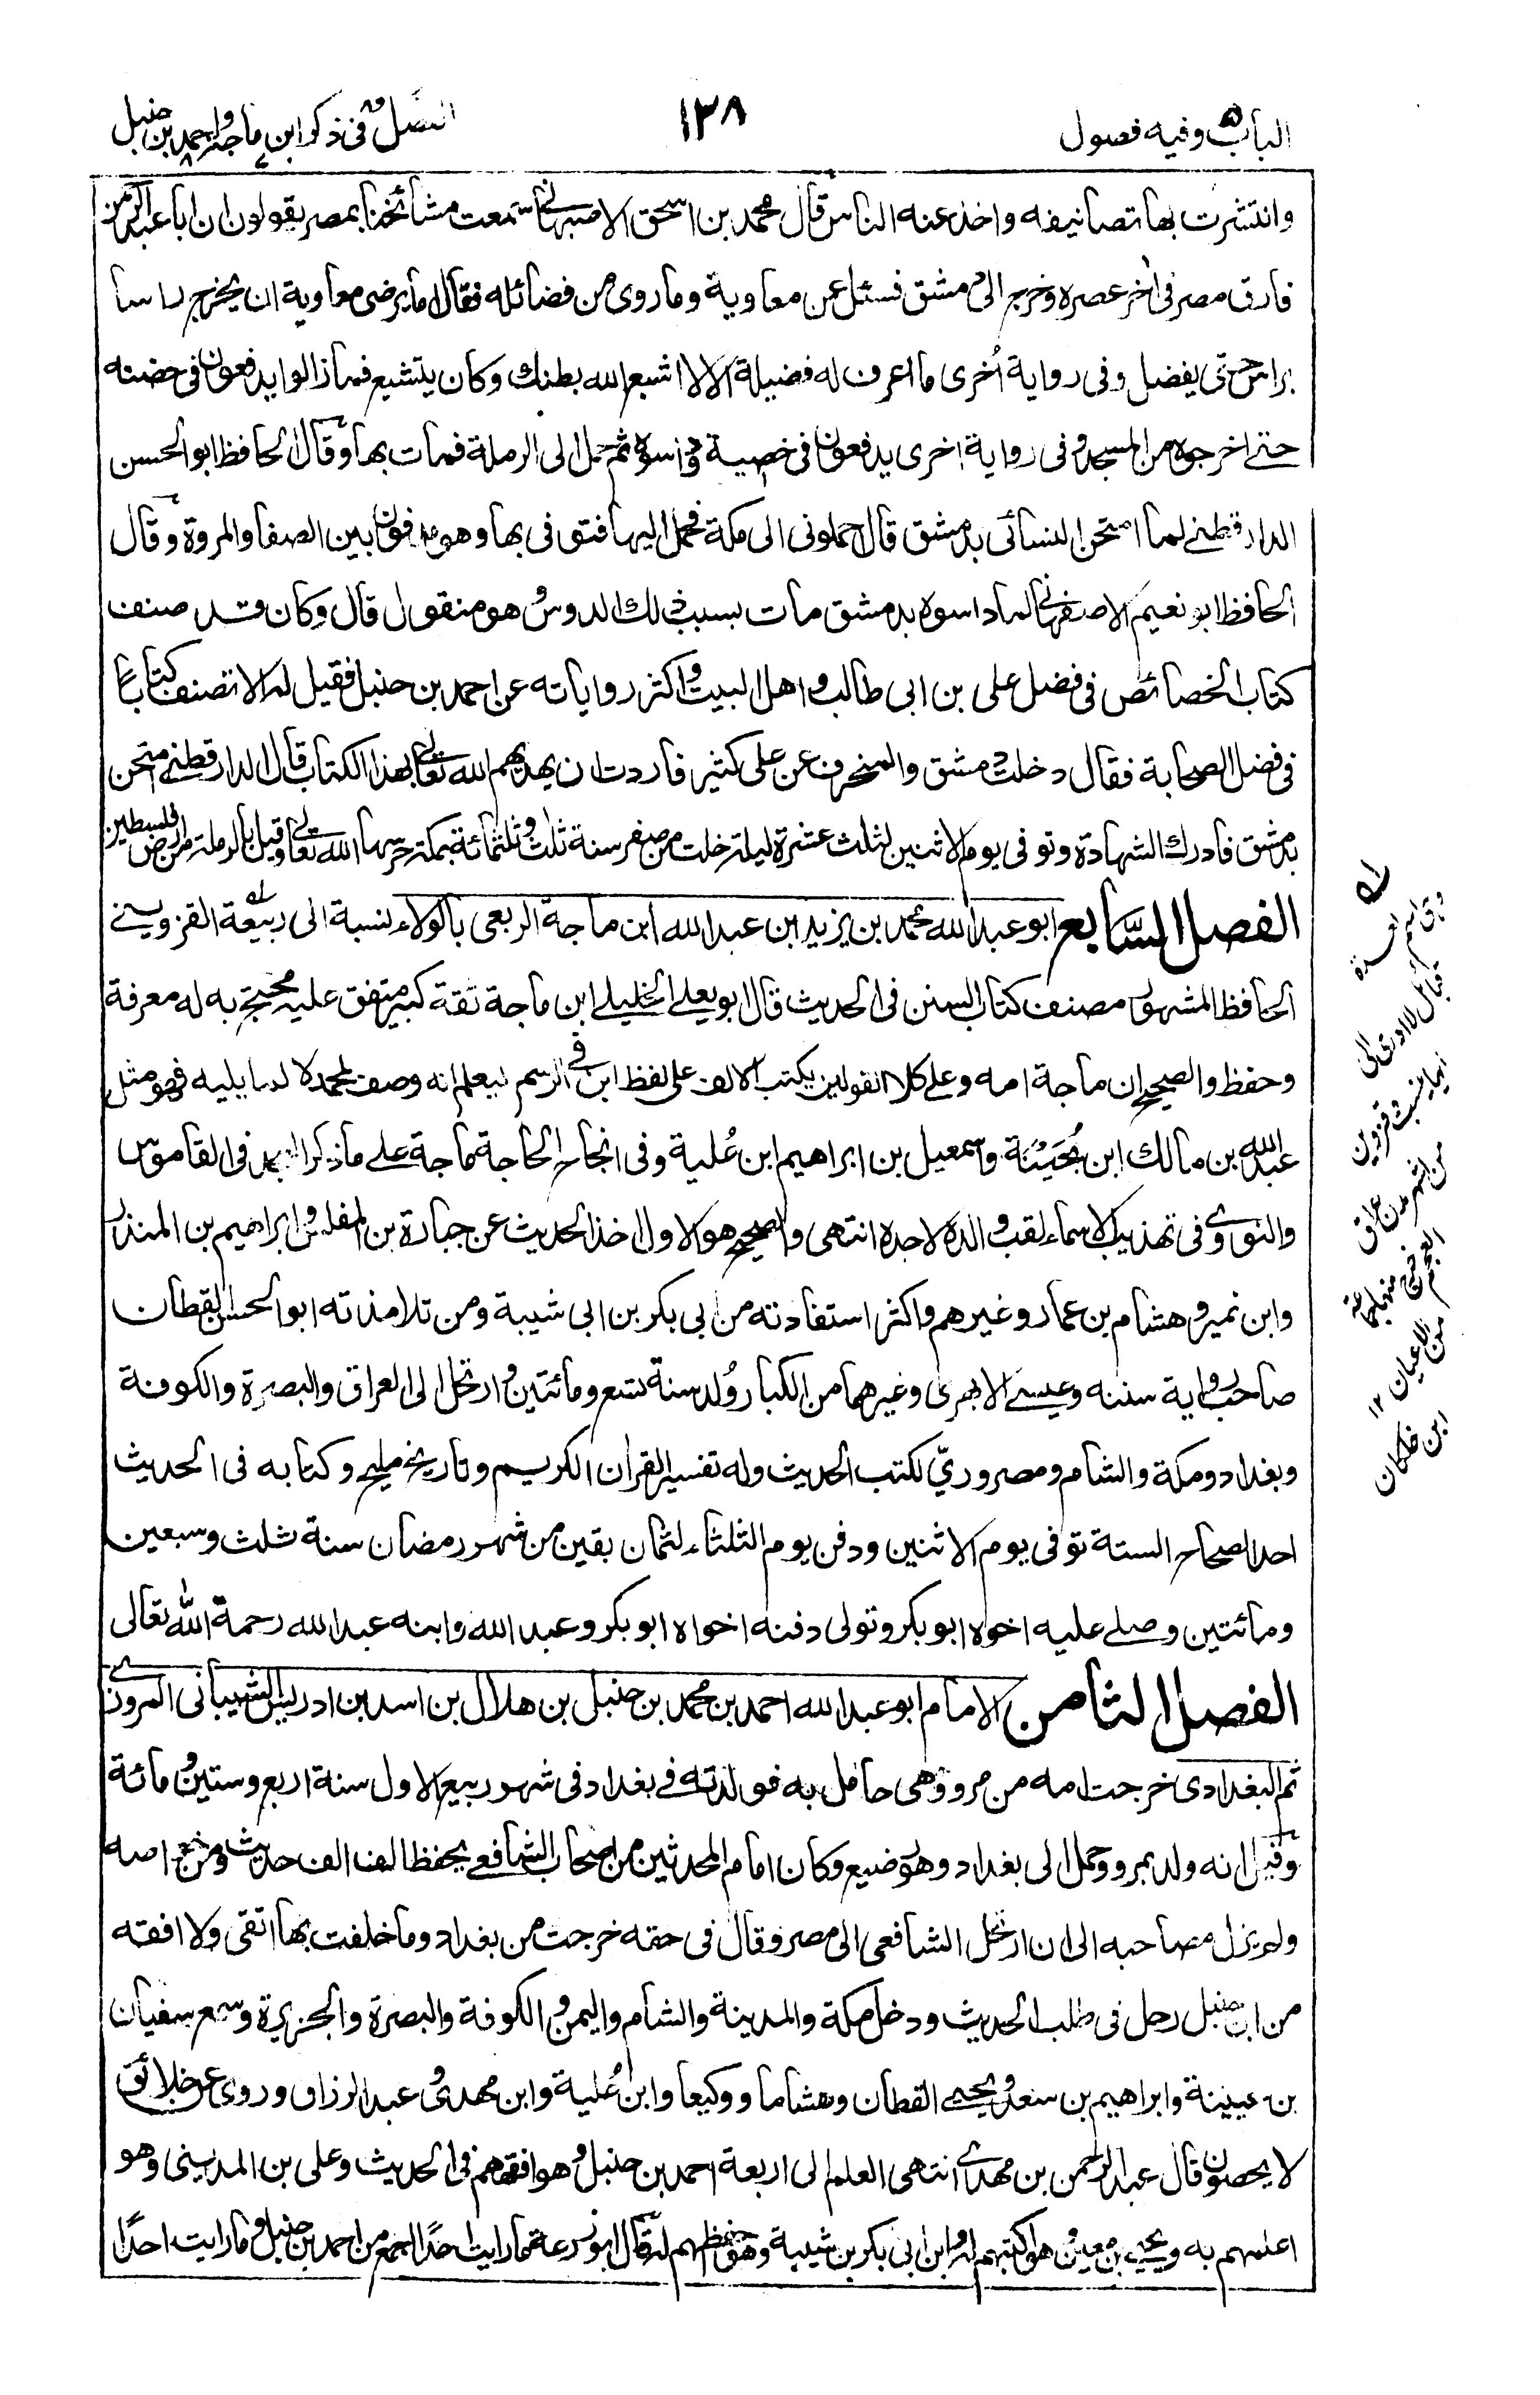 الباب وفيه فصول
١٣٨
الفصل في ذكر ابن ماجة واحمد بن حنبل
وانتشرت بها تصانيفه واخذ عنه الناس قال محمد بن اسحق الاصبهاني سمعت مشائخنا بمصر يقولون ان ابا عبد الرحمن
فارق مصر في اخر عصره وخرج الى دمشق فسئل عن معاوية وما روى من فضائله فقال اما يرضى معاوية ان يخرج راسا
براس حتى يفضل وفي رواية اُخرى ما اعرف له فضيلة الا لا اشبع الله بطنك وكان يتشيع فما زالوا يدفعون في حضنه
حتى اخرجوه من المسجد وفي رواية اخرى يدفعون في خصيية وداسوه ثم حمل الى الرملة فمات بها وقال الحافظ ابو الحسن
الدارقطني لما امتحن النسائي بدمشق قال احملوني الى مكة فحمل اليها فتوفى بها وهو مدفون بين الصفا والمروة وقال
الحافظ ابو نعيم الاصفهاني لما داسوه بدمشق مات بسبب ذلك الدوس وهو منقول قال وكان قد صنف
كتاب الخصائص في فضل علي بن ابي طالب واهل البيت واكثر رواياته عن احمد بن حنبل فقيل له الا تصنف كتابا
في فضل الصحابة فقال دخلت دمشق والمنحرف عن علي كثير فاردت ان يهديهم الله تعالى بهذا الكتاب قال الدارقطني امتحن
بدمشق فادرك الشهادة وتوفى يوم الاثنين لثلث عشرة ليلة خلت من صفر سنة ثلث وثلثمائة بمكة حرسها الله تعالى وقيل بالرملة من ارض فلسطين
الفصل السَّابع ابو عبد الله محمد بن يزيد ابن عبد الله ابن ماجة الربعي بالولاء نسبة الى ربيعة القزويني
الحافظ المشهور مصنف كتاب السنن في الحديث قال ابو يعلى الخليلي ابن ماجة ثقة كبير متفق عليه محتج به له معرفة
وحفظ والصحيح ان ماجة امه وعلى كلا القولين يكتب الالف على لفظ ابن في الرسم ليعلم انه وصف لمحمد لا لما يليه فهو مثل
عبد الله بن مالك ابن بُحَيْنَة واسمعيل بن ابراهيم ابن عُلية وفي انجاح الحاجة ماجة على ما ذكر المجد في القاموس
والنووي في تهذيب الاسماء لقب والده لا جده انتهى والصحيح هو الاول اخذ الحديث عن جبارة بن المفلس وابراهيم بن المنذر
وابن نمير وهشام بن عمار وغيرهم واكثر استفادته من ابي بكر بن ابي شيبة ومن تلامذته ابو الحسن القطان
صاحب رواية سننه وعيسى الابهري وغيرهما من الكبار وُلد سنة تسع ومائتين وارتحل الى العراق والبصرة والكوفة
وبغداد ومكة والشام ومصر وريّ لكتب الحديث وله تفسير القران الكريم وتاريخ مليح وكتابه في الحديث
احد الصحاح الستة توفى يوم الاثنين ودفن يوم الثلثاء لثمان بقين من شهر رمضان سنة ثلث وسبعين
ومائتين وصلى عليه اخوه ابو بكر وتولى دفنه اخواه ابو بكر وعبد الله وابنه عبد الله رحمة الله تعالى
الفصل الثامن الامام ابو عبد الله احمد بن محمد بن حنبل بن هلال بن اسد بن ادريس الشيباني المروزي
ثم البغدادي خرجت امه من مرو وهي حامل به فولدته في بغداد في شهر ربيع الاول سنة اربع وستين ومائة
وقيل انه ولد بمرو وحمل الى بغداد وهو رضيع وكان امام المحدثين من اصحاب الشافعي يحفظ الف الف حديث ومن خواصه
ولم يزل مصاحبه الى ان ارتحل الشافعي الى مصر وقال في حقه خرجت من بغداد وما خلفت بها اتقى ولا افقه
من ابن حنبل رحل في طلب الحديث ودخل مكة والمدينة والشام واليمن والكوفة والبصرة والجزيرة وسمع سفيان
بن عيينة وابراهيم بن سعد ويحيى القطان وهشاما ووكيعا وابن عُلية وابن مهدي وعبد الرزاق وروى عن خلائق
لا يحصون قال عبد الرحمن بن مهدي انتهى العلم الى اربعة احمد بن حنبل وهو افقههم في الحديث وعلي بن المديني وهو
اعلمهم به ويحيى بن معين وهو اكتبهم له وابن ابي بكر بن شيبة وهو احفظهم له قال ابو زرعة ما رايت احدًا اجمع من احمد بن حنبل وما رايت احدًا
قبائل لا ادري الى
ايها ينسب وقزوين
من اشهر مدن عراق
العجم خرج منها جماعة
من الاعيان ١٢
ابن خلكان